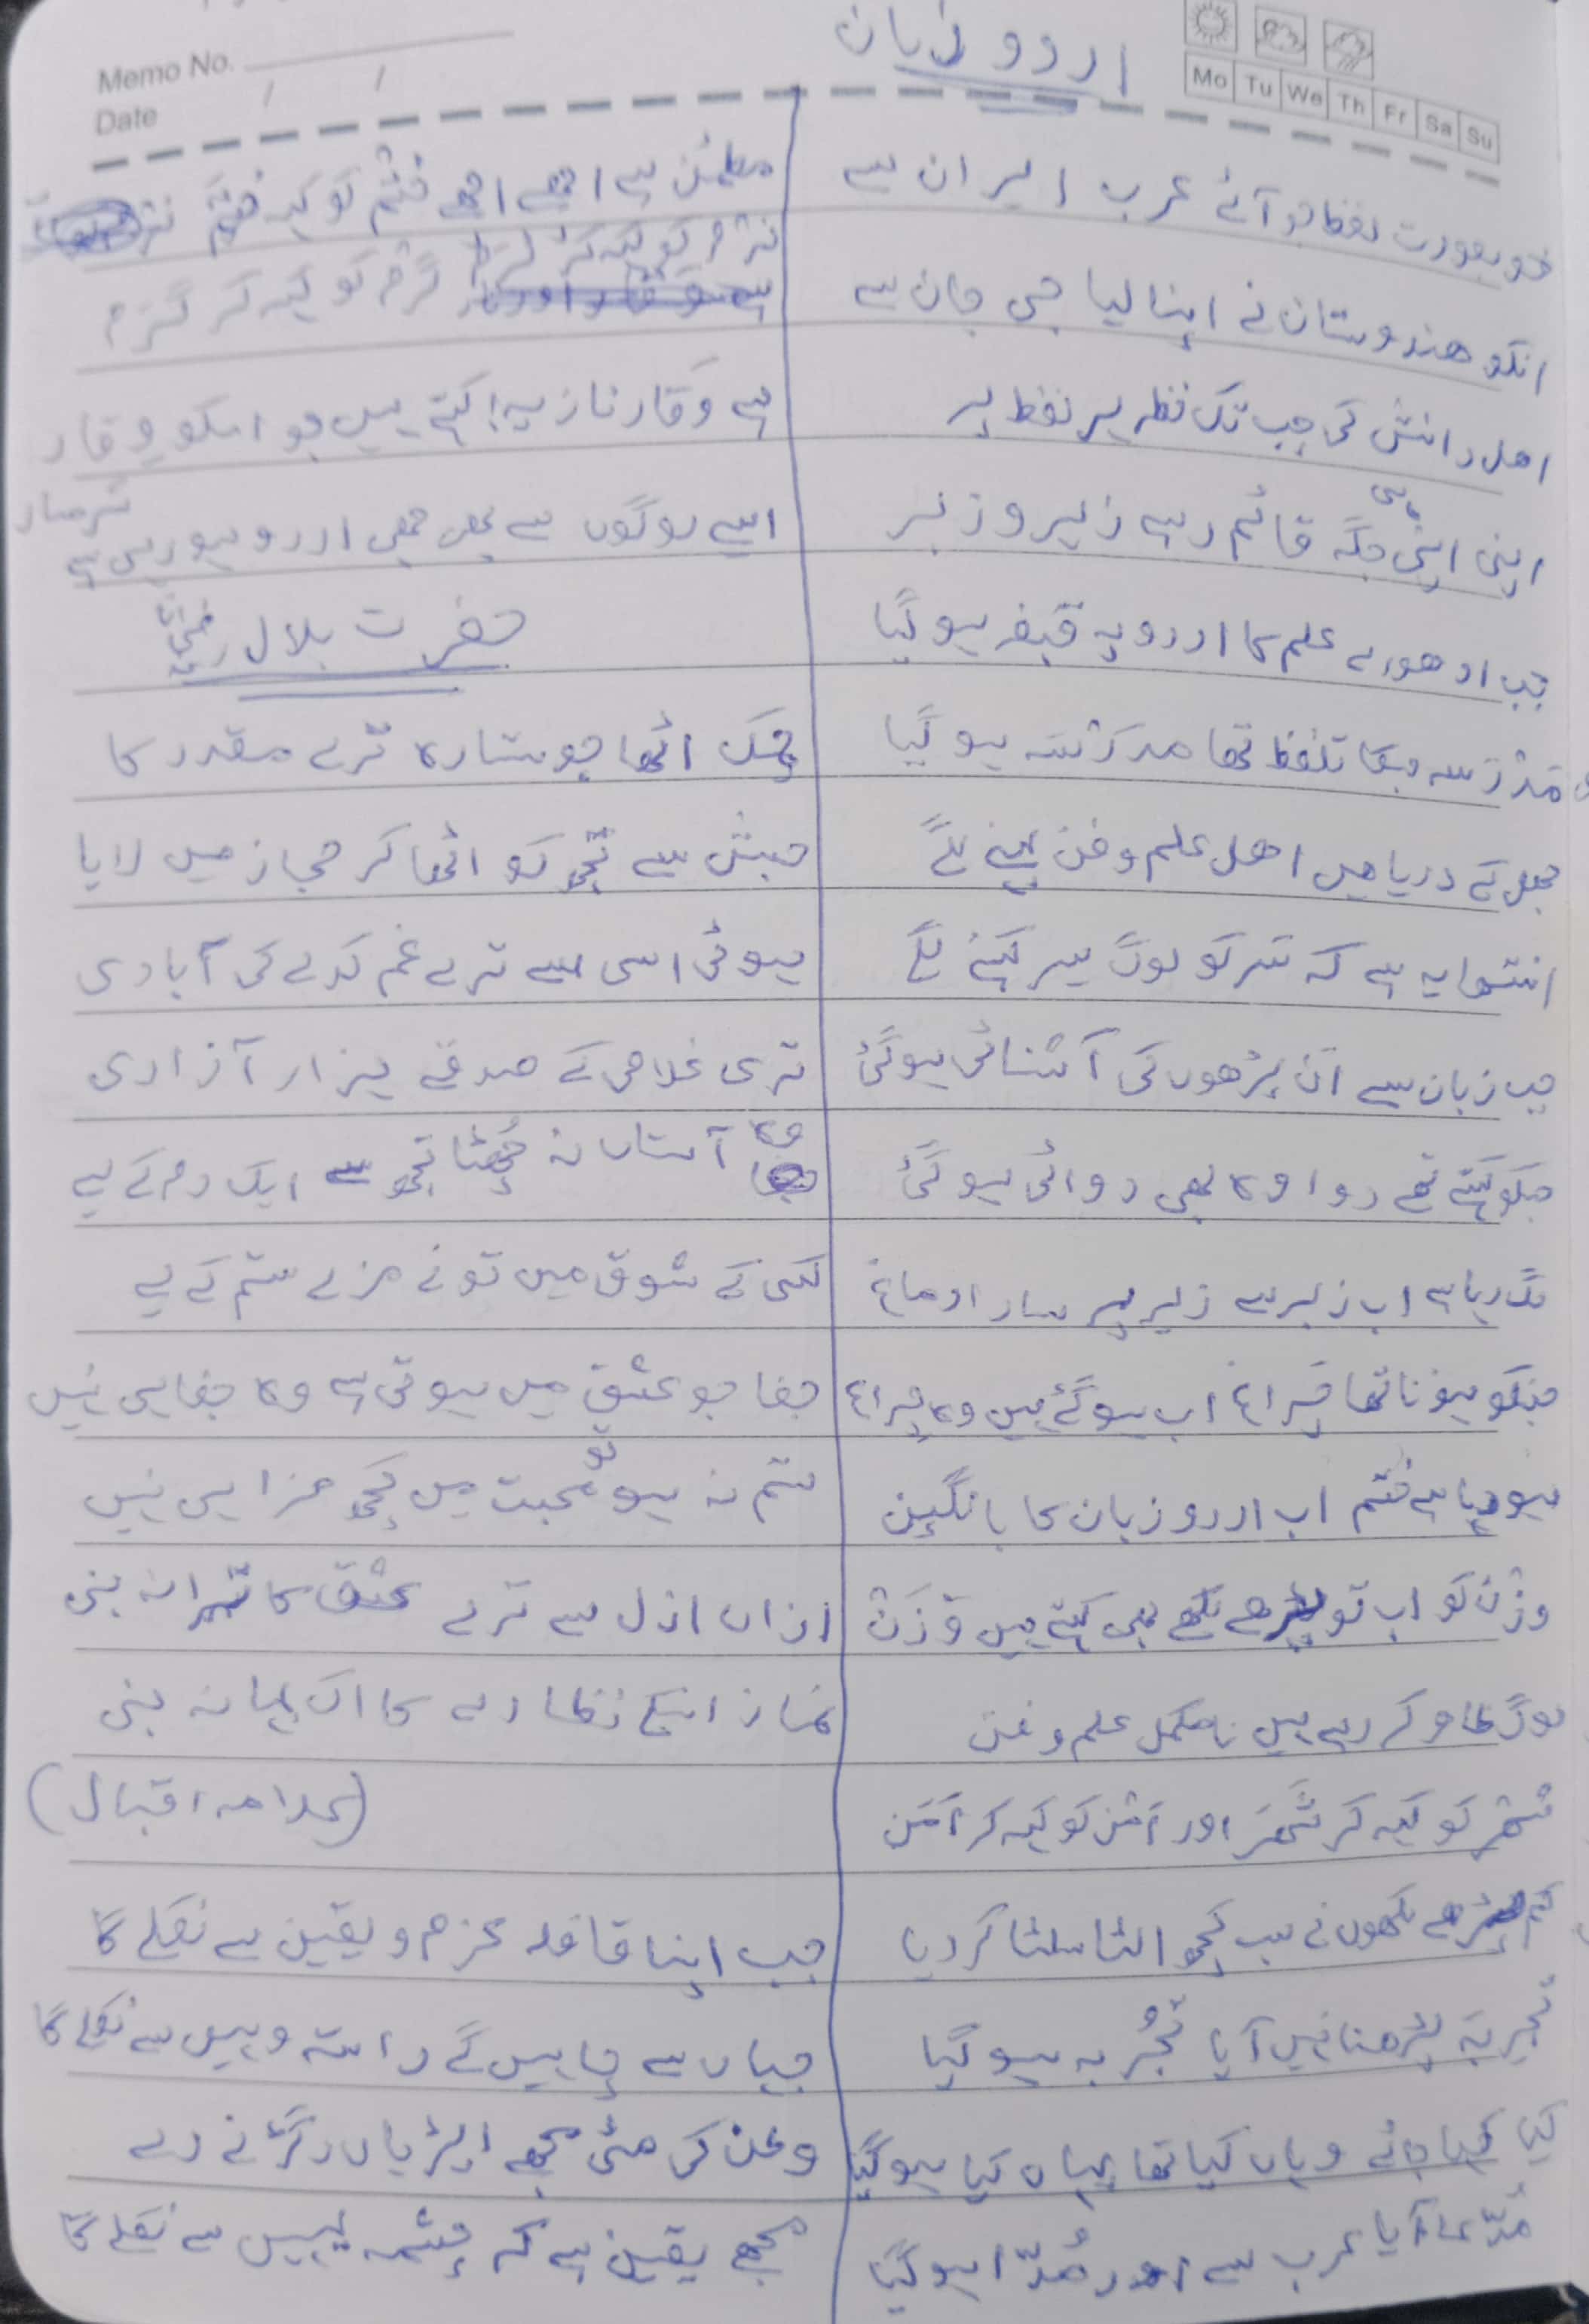 Memo No.
Date / /
Mo Tu We Th Fr Sa Su
اردو زبان
خوبصورت لفظ جو آئے عرب ایران سے
انکو ھندوستان نے اپنا لیا جی جان سے
اھل دانش کی جب تک نظر پر لفظ پر
اپنی اپنی جگہ قائم رہے زیر و زبر
جب ادھورے علم کا اردو پہ قبضہ ہو گیا
مَدْرَسہ جسکا تلفظ تھا مدرَسَہ ہو گیا
جھل کے دریا میں اھل علم و فن بہنے لگے
انتہا یہ ہے کہ سَر کو لوگ سِر کہنے لگے
جب زبان سے اَن پڑھوں کی آشنائی ہو گئی
جسکو کہتے تھے دوا وہ بھی دوائی ہو گئی
لگ رہا ہے اب زبر سے زیر پر سارا دماغ
جنکو ہونا تھا چَراغ اب ہو گئے ہیں وہ چِراغ
ہو رہا ہے ختم اب اردو زبان کا بانکپن
وزْن کو اب تو پڑھے لکھے بھی کہتے ہیں وَزَن
لوگ کام کر رہے ہیں نامکمل علم و فن
شہْر کو کہہ کر شَہَر اور اَمْن کو کہہ کر اَمَن
کم پڑھے لکھوں نے سب کچھ الٹا سلٹا کر دیا
تجرِبہ پڑھنا نہیں آیا تجُربہ ہو گیا
کیا کہا جائے وہاں کیا تھا یہاں کیا ہو گیا
مُدّعا آیا عرب سے اور مُدّا ہو گیا
مطمئن ہے اچھے اچھے ختْم کو کہہ ختَم
نرْم کو کہہ کر نرَم گرْم کو کہہ کر گرَم
ہے وَقار نازیبا کہتے ہیں جو اسکو وِقار
ایسے لوگوں سے بھی اردو ہو رہی ہے شرمسار
حضرت بلال رضی
چمک اٹھا جو ستارہ ترے مقدر کا
حبش سے تجھ کو اٹھا کر حجاز میں لایا
ہوئی اسی سے ترے غم کدے کی آبادی
تری غلامی کے صدقے ہزار آزادی
وہ آستاں نہ چُھٹا تجھ سے ایک دم کے لیے
کسی کے شوق میں تو نے مزے ستم کے لیے
جفا جو عشق میں ہوتی ہے وہ جفا ہی نہیں
ستم نہ ہو تو محبت میں کچھ مزا ہی نہیں
اذاں ازل سے ترے عشق کا ترانہ بنی
نماز اسکے نظارے کا اک بہانہ بنی
(علامہ اقبال)
جب اپنا قافلہ عزم و یقین سے نکلے گا
جہاں سے چاہیں گے راستہ وہیں سے نکلے گا
وطن کی مٹی مجھے ایڑیاں رگڑنے دے
مجھے یقین ہے کہ چشمہ یہیں سے نکلے گا